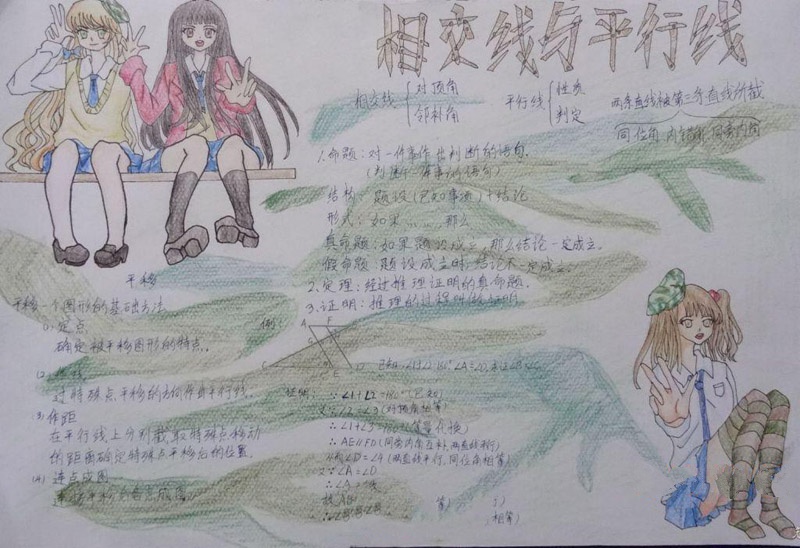 相交线与平行线
相交线 对顶角 邻补角
平行线 性质 判定
两条直线被第三条直线所截
同位角 内错角 同旁内角
1.命题：对一件事作出判断的语句.
(判断一件事的语句)
结构：题设(已知事项)+结论
形式：如果……那么
真命题：如果题设成立，那么结论一定成立。
假命题：题设成立时，结论不一定成立。
2.定理：经过推理证明的真命题.
3.证明：推理的过程叫做证明
平移
平移一个图形的基础方法
(1)定点
确定被平移图形的特点。
(2)
过特殊点平移的方向作出平行线.
(3)作距
在平行线上分别截取特殊点移动
的距离确定特殊点平移后的位置.
(4)连点成图
例
证明：∵∠1+∠2=180°(已知)
∠2=∠3(对顶角相等)
∴∠1+∠3=180°(等量代换)
∴AE∥FD(同旁内角互补，两直线平行)
(两直线平行，同位角相等)
∵∠A=∠D
相等)